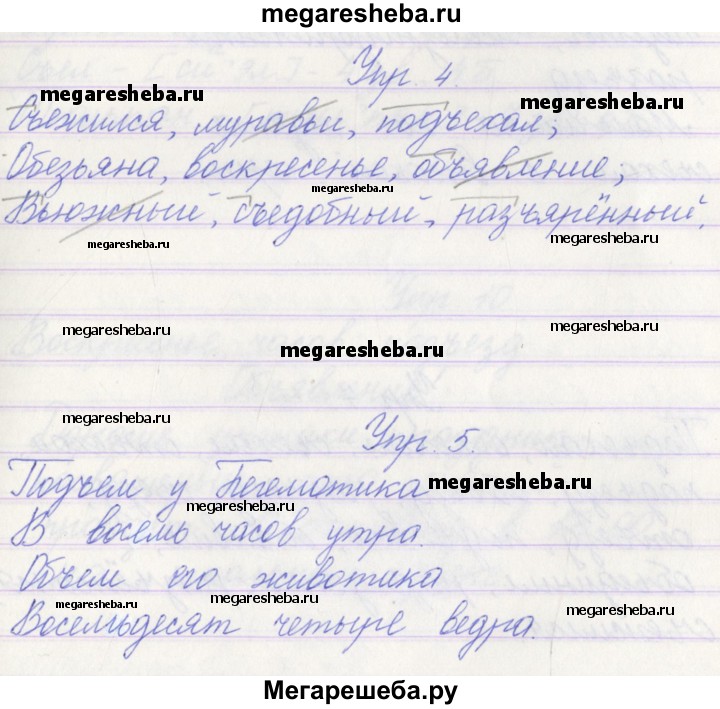 megaresheba.ru
Упр. 4.
megaresheba.ru megaresheba.ru
Съежился, муравьи, подъехал,
Обезьяна, воскресенье, объявление,
megaresheba.ru
Вьюжный, съедобный, разъярённый.
megaresheba.ru megaresheba.ru
megaresheba.ru megaresheba.ru
megaresheba.ru
megaresheba.ru
Упр. 5.
Подъем у Бегемотика megaresheba.ru
megaresheba.ru
В восемь часов утра.
Объем его животика
megaresheba.ru megaresheba.ru megaresheba.ru
Восемьдесят четыре ведра.
Мегарешеба.ру